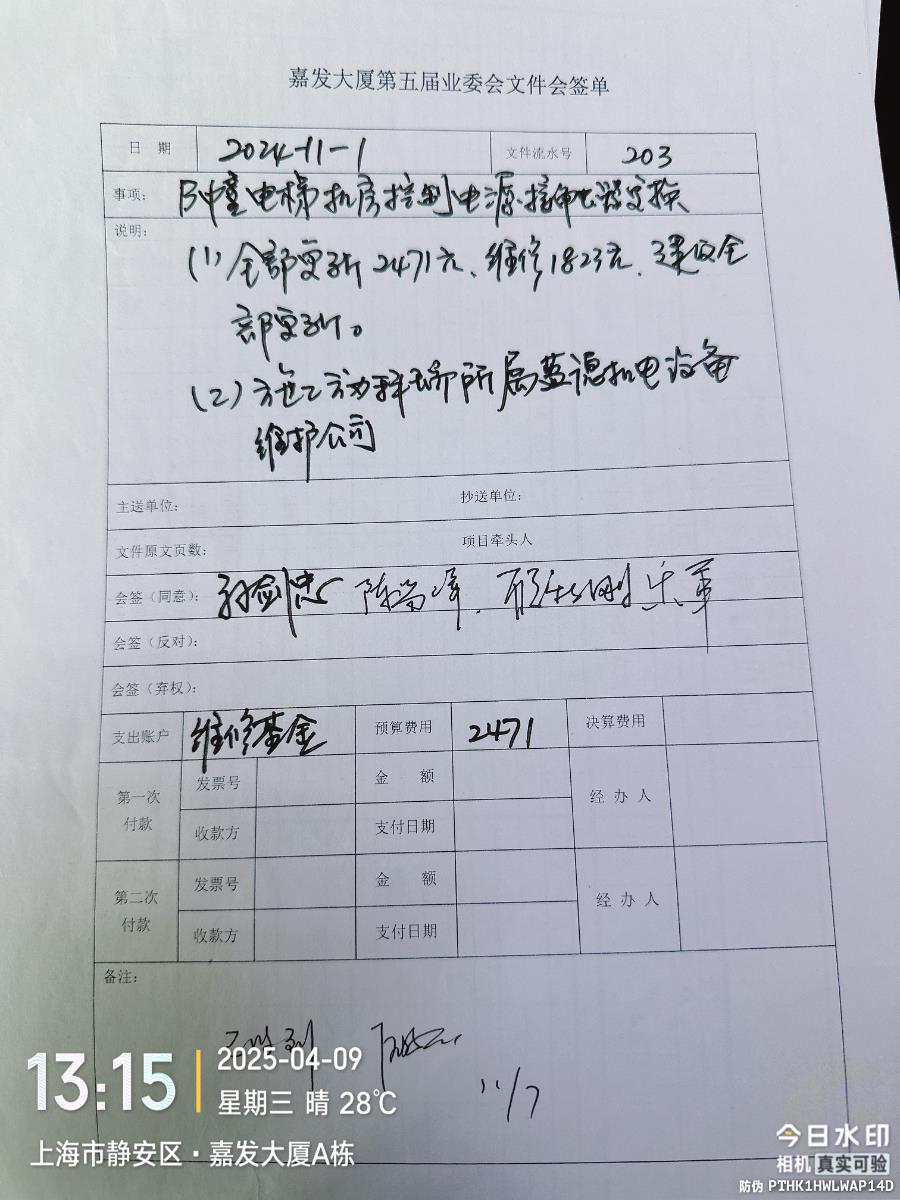 嘉发大厦第五届业委会文件会签单
日 期 2024-11-1 文件流水号 203
事项: B中童电梯机房控制电源接触器更换
说明:
(1) 全部更新2471元、维修1823元、建议全
部更新。
(2) 施工方为 所属蓝德机电设备
维护公司
主送单位: 抄送单位:
文件原文页数: 项目牵头人
会签(同意): 孙剑忠 陈 乐军
会签(反对):
会签(弃权):
支出账户 维修基金 预算费用 2471 决算费用
第一次付款 发票号 金 额 经 办 人
收款方 支付日期
第二次付款 发票号 金 额 经 办 人
收款方 支付日期
备注:
11/7
13:15
2025-04-09
星期三 晴 28℃
上海市静安区·嘉发大厦A栋
今日水印
相机 真实可验
防伪 PTHK1HWLWAP14D